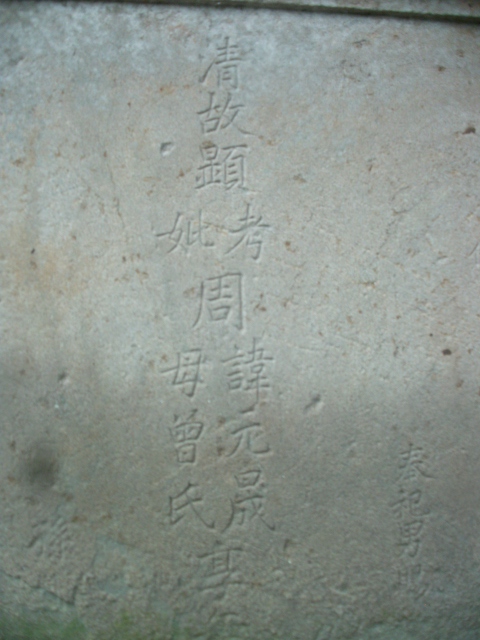 奉祀男
清故顯
考
妣
周
諱元晟
母曾氏
孫